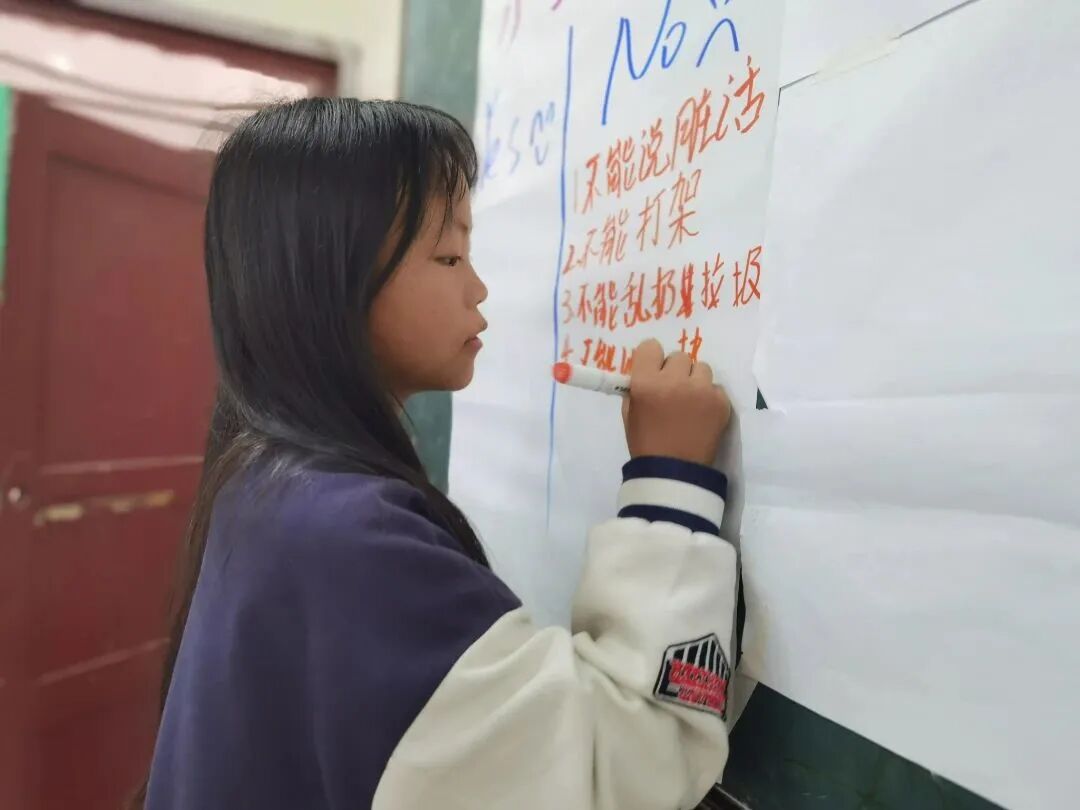 No
es
1不能说脏话
2.不能打架
3.不能乱扔垃圾
4.不能